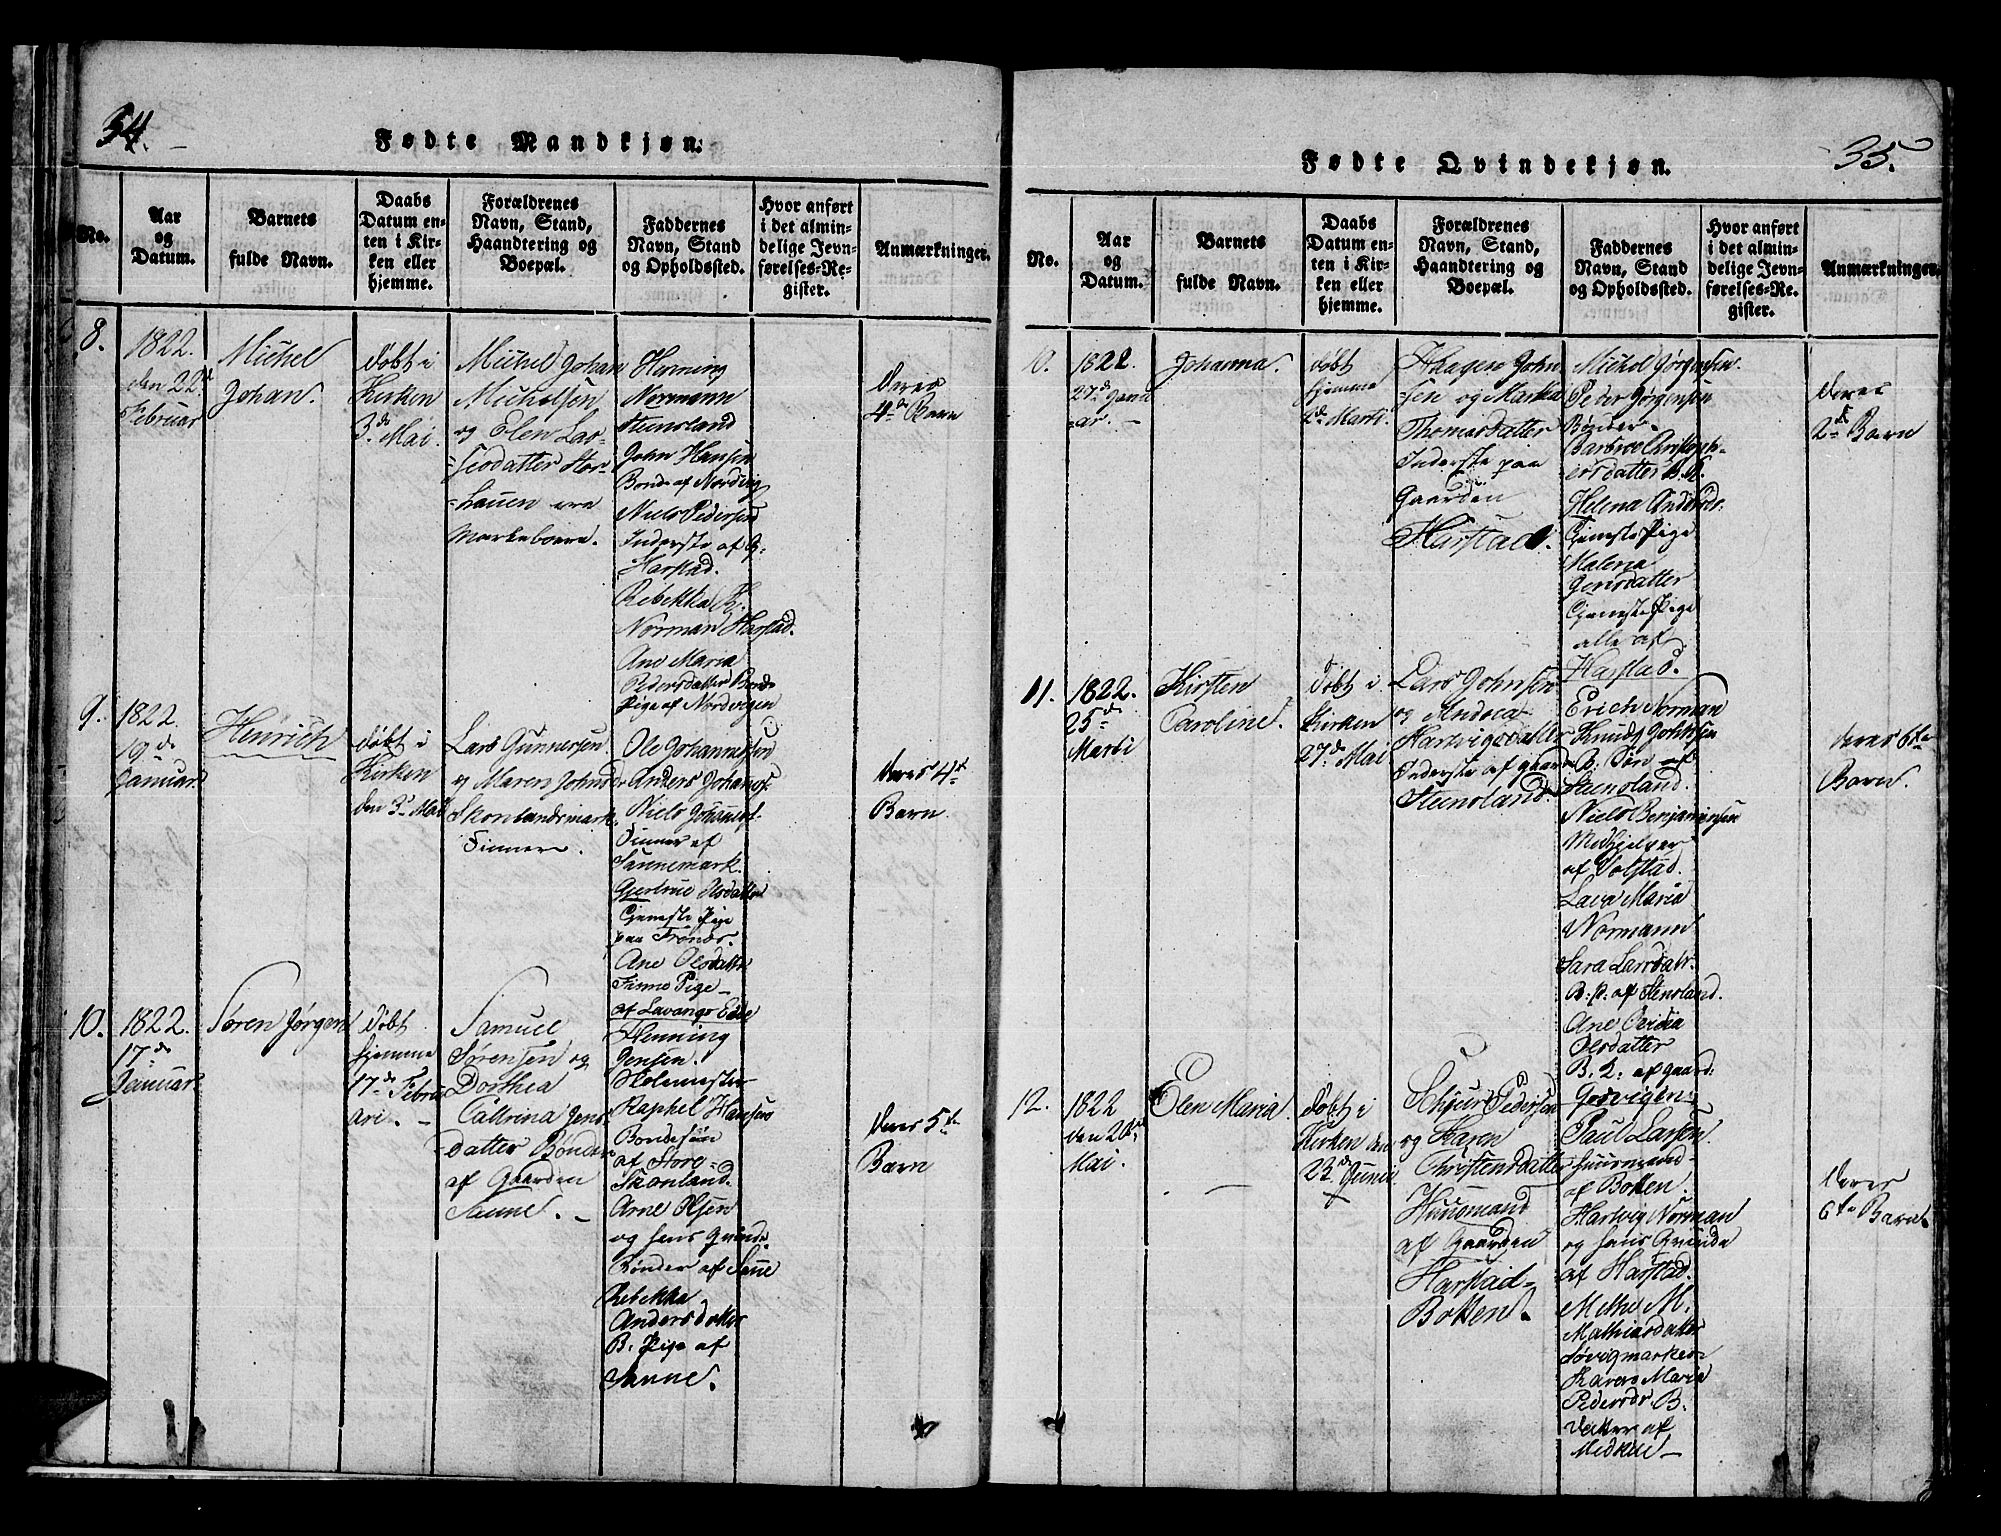 34.
Fødte Mandkjøn.
No.
Aar
og
Datum.
Barnets
fulde Navn.
Daabs
Datum en-
ten i Kir-
ken eller
hjemme.
Forældrenes
Navn, Stand,
Haandtering og
Boepæl.
Faddernes
Navn, Stand
og Opholdssted.
Hvor anført
i det almin-
delige Jevn-
førelses-Re-
gister.
Anmærkninger.
8.
1822.
den 22d
Februar
Michel
Johan.
døbt i
Kirken
3de Mai.
Michel Johan
Michelsen
og Elen Lar-
sdatter Stor-
hauen
Markeboere.
Henning
Normann
Steensland
John Hansen
Bonde af Nordvig
Niels Pedersen
Inderste af G.
Harstad.
Rebekka K.
Norman Harstad.
Ane Maria
Pedersdatter Bonde
Pige af Nordvigen
deres
4de Barn
9.
1822.
19de
Januar
Henrich
døbt i
Kirken
den 3d Mai
Lars Gunnersen
og Maren Johnsd
Skonlandsmark
Finner.
Ole Johannessen
Anders Johanns.
Niels Johannes.
Finner af
Sannemark.
Gjertrue Olsdatter
Tjeneste Pige
paa Trones.
Ane Olsdatter
Finne Pige
af Lavangs Eide
deres 4de
Barn
10.
1822.
17de
Januar
Søren Jørgen
døbt
hjemme
17de Febru
ari.
Samuel
Sørensen og
Dorthea
Cathrina Jens
datter Bønder
af Gaarden
Sanne.
Henning
Jensen.
Skolemester
Raphel Hansen
Bondesøn
af Store-
Skonland.
Arne Olsen
og hans Qvinde
Bønder af Sane
Rebekka
Andersdatter
B. Pige af
Sanne.
deres 5te
Barn
35.
Fødte Qvindekjøn.
No.
Aar
og
Datum.
Barnets
fulde Navn.
Daabs
Datum en-
ten i Kir-
ken eller
hjemme.
Forældrenes
Navn, Stand,
Haandtering og
Boepæl.
Faddernes
Navn, Stand
og Opholdssted.
Hvor anført
i det almin-
delige Jevn-
førelses-Re-
gister.
Anmærkninger.
10.
1822.
27de Janu
ar.
Johanna.
døbt
hjemme
2de Marti.
Haagen John
sen og Marka
Thomasdatter
Inderste paa
Gaarden
Harstad.
Michel Jørgensen.
Peder Jørgensen
Bønder
Barbroe Christoph-
ersdatter B. K.
Helena Andersd.
Tjeneste Pige
Malena
Jensdatter
Tjeneste Pige
alle af
Harstad.
deres
2de Barn
11.
1822.
25de
Marti
Kirsten
Caroline.
døbt i
Kirken
27de Mai
Lars Johnsen
og Andrea
Hartvigsdatter
Inderste af gaard
Steensland.
Erich Norman
Knud Johnsen
B. Søn af
Steensland.
Niels Benjaminsen
Medhjelper
af Volstad.
Lava Maria
Normann
Sara Larsdatr.
B. P. af Stensland.
Ane
Olsdatter
af gaard:
deres 6te
Barn.
12.
1822
Mai.
Elen Maria
døbt i
Kirken den
23de Junii
Schjur Pedersen
og Karen
Christensdatter
Huusmand
af Gaarden
Harstad-
Botten.
Paul Larsen
huusmand
af Botten
Hartvig Norman
og hans Qvinde
af Harstad.
Methe M.
Mathiasdatter
Karen Maria
Pedersdr. B.
Datter af
Medkile
deres
6te Barn